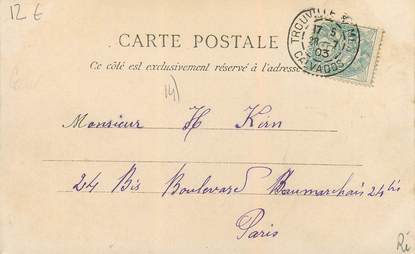 12 €
CARTE POSTALE
Ce côté est exclusivement réservé à l'adresse
TROUVILLE
17 5
03
CALVADOS
14)
Monsieur H Kirn
24 Bis Boulevard Beaumarchais 24 bis
Paris
Ri